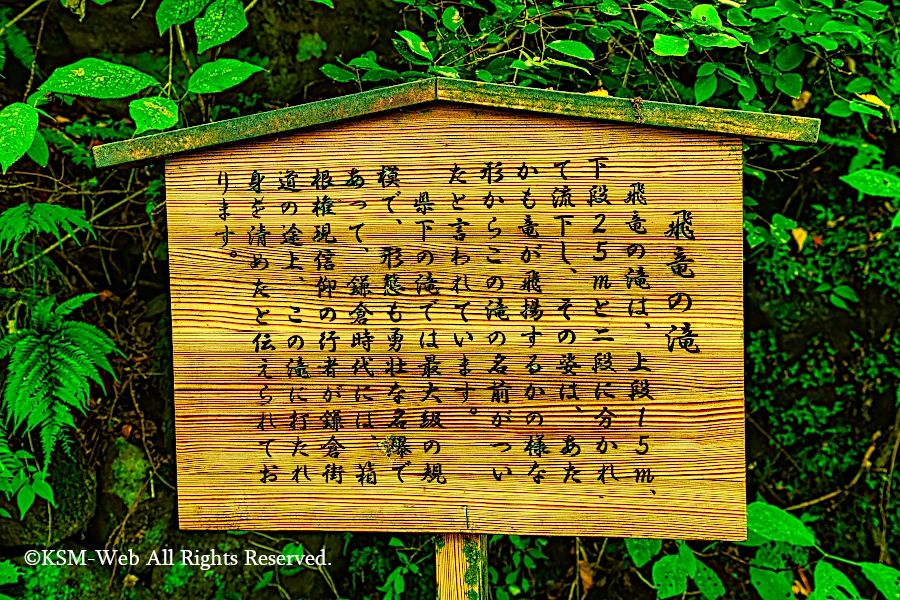 飛竜の滝
飛竜の滝は、上段15m、
下段25mと二段に分かれ
て流下し、その姿は、あた
かも竜が飛揚するかの様な
形からこの滝の名前がつい
たと言われています。
県下の滝では最大級の規
模で、形態も勇壮な名瀑で
あって、鎌倉時代には、箱
根権現信仰の行者が鎌倉街
道の途上、この滝に打たれ
身を清めたと伝えられてお
ります。
©KSM-Web All Rights Reserved.